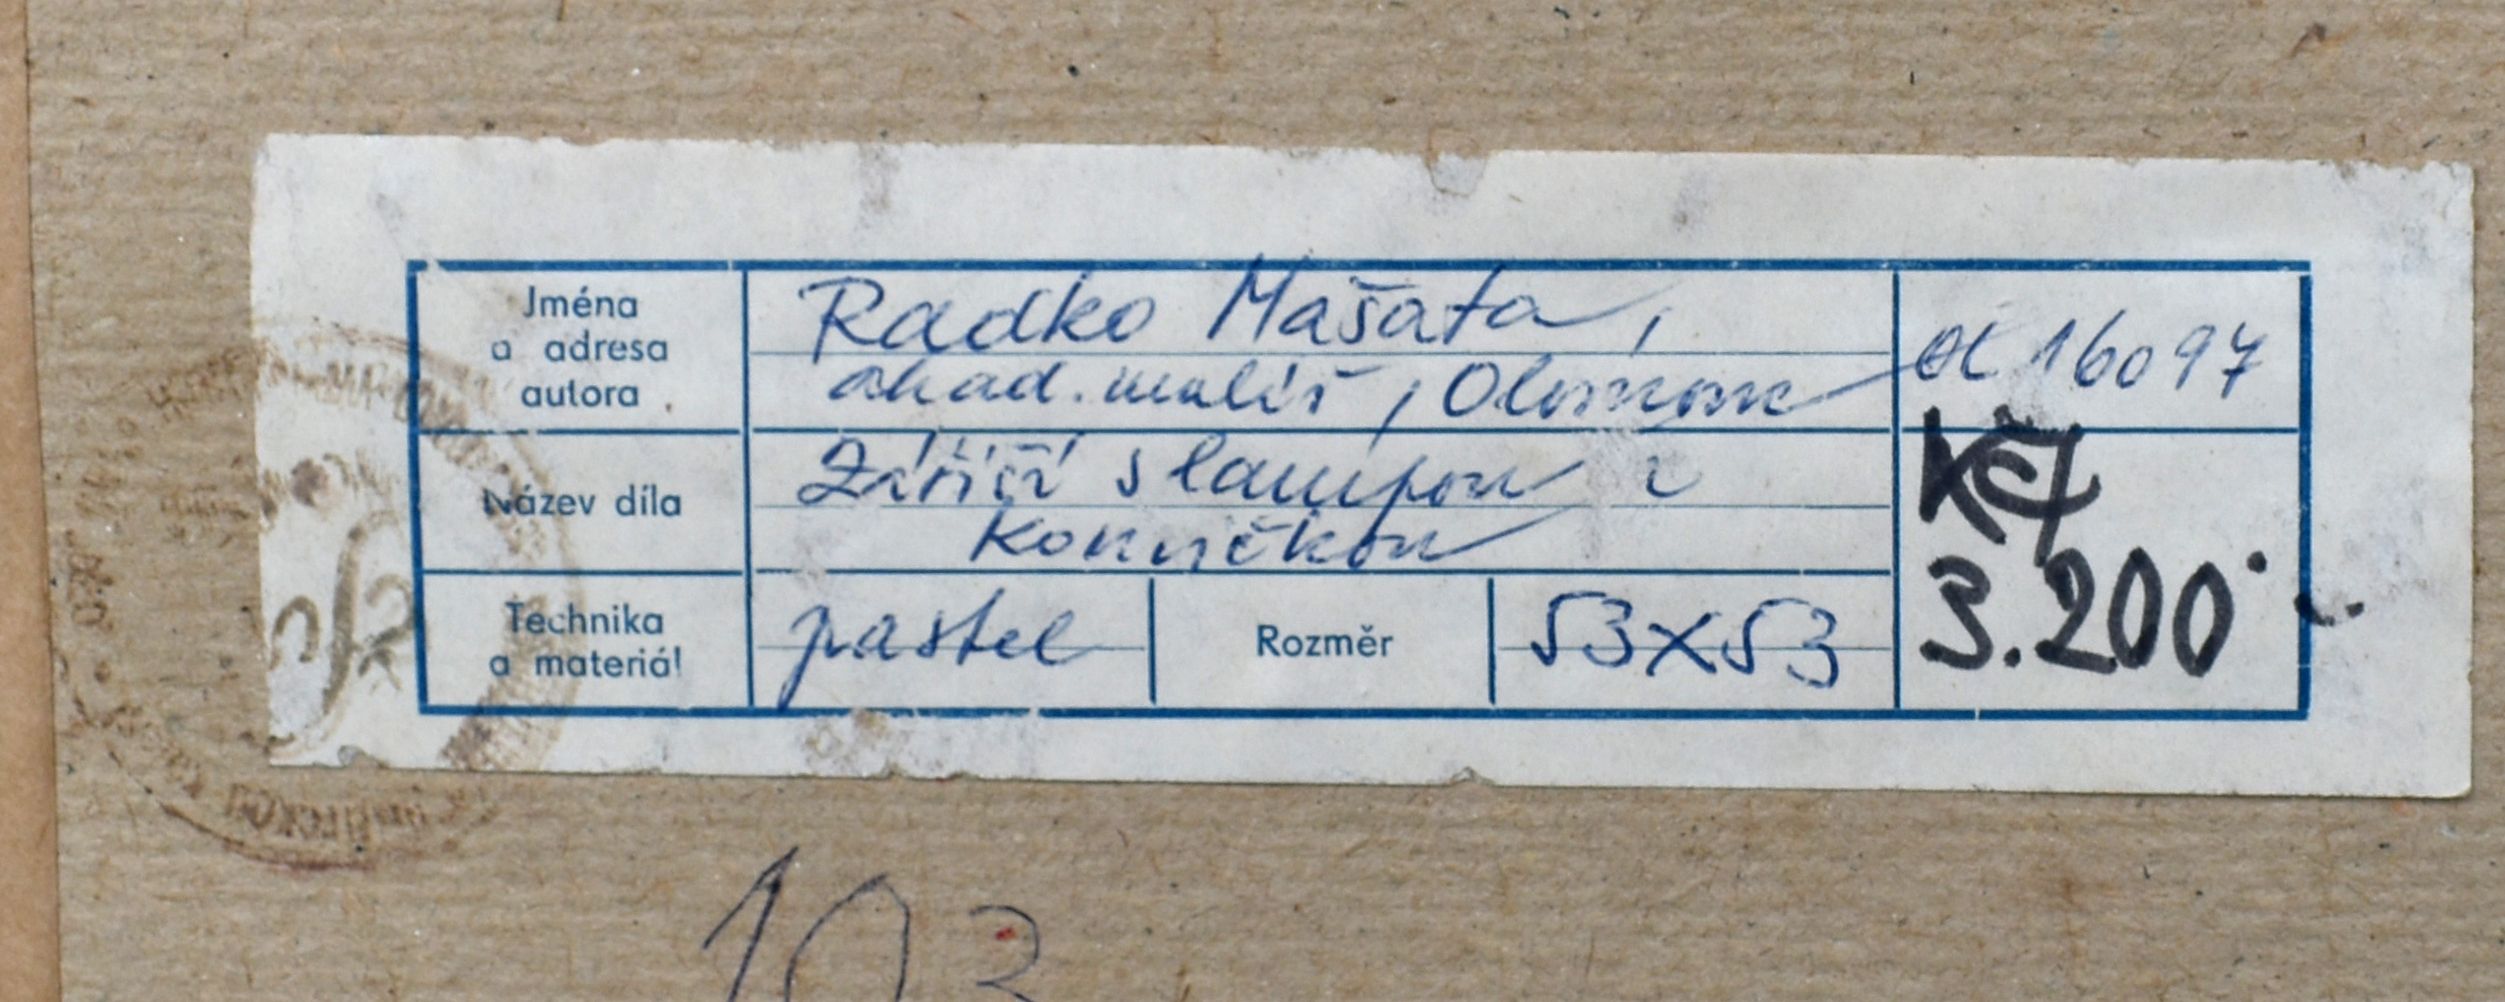 Jména
a adresa
autora
Radko Mašata,
akad. malíř, Olomouc
Název díla
Zářící s lampou i
Koničkou
Technika
a materiál
pastel
Rozměr
53x53
16097
Kčs
3.200
103